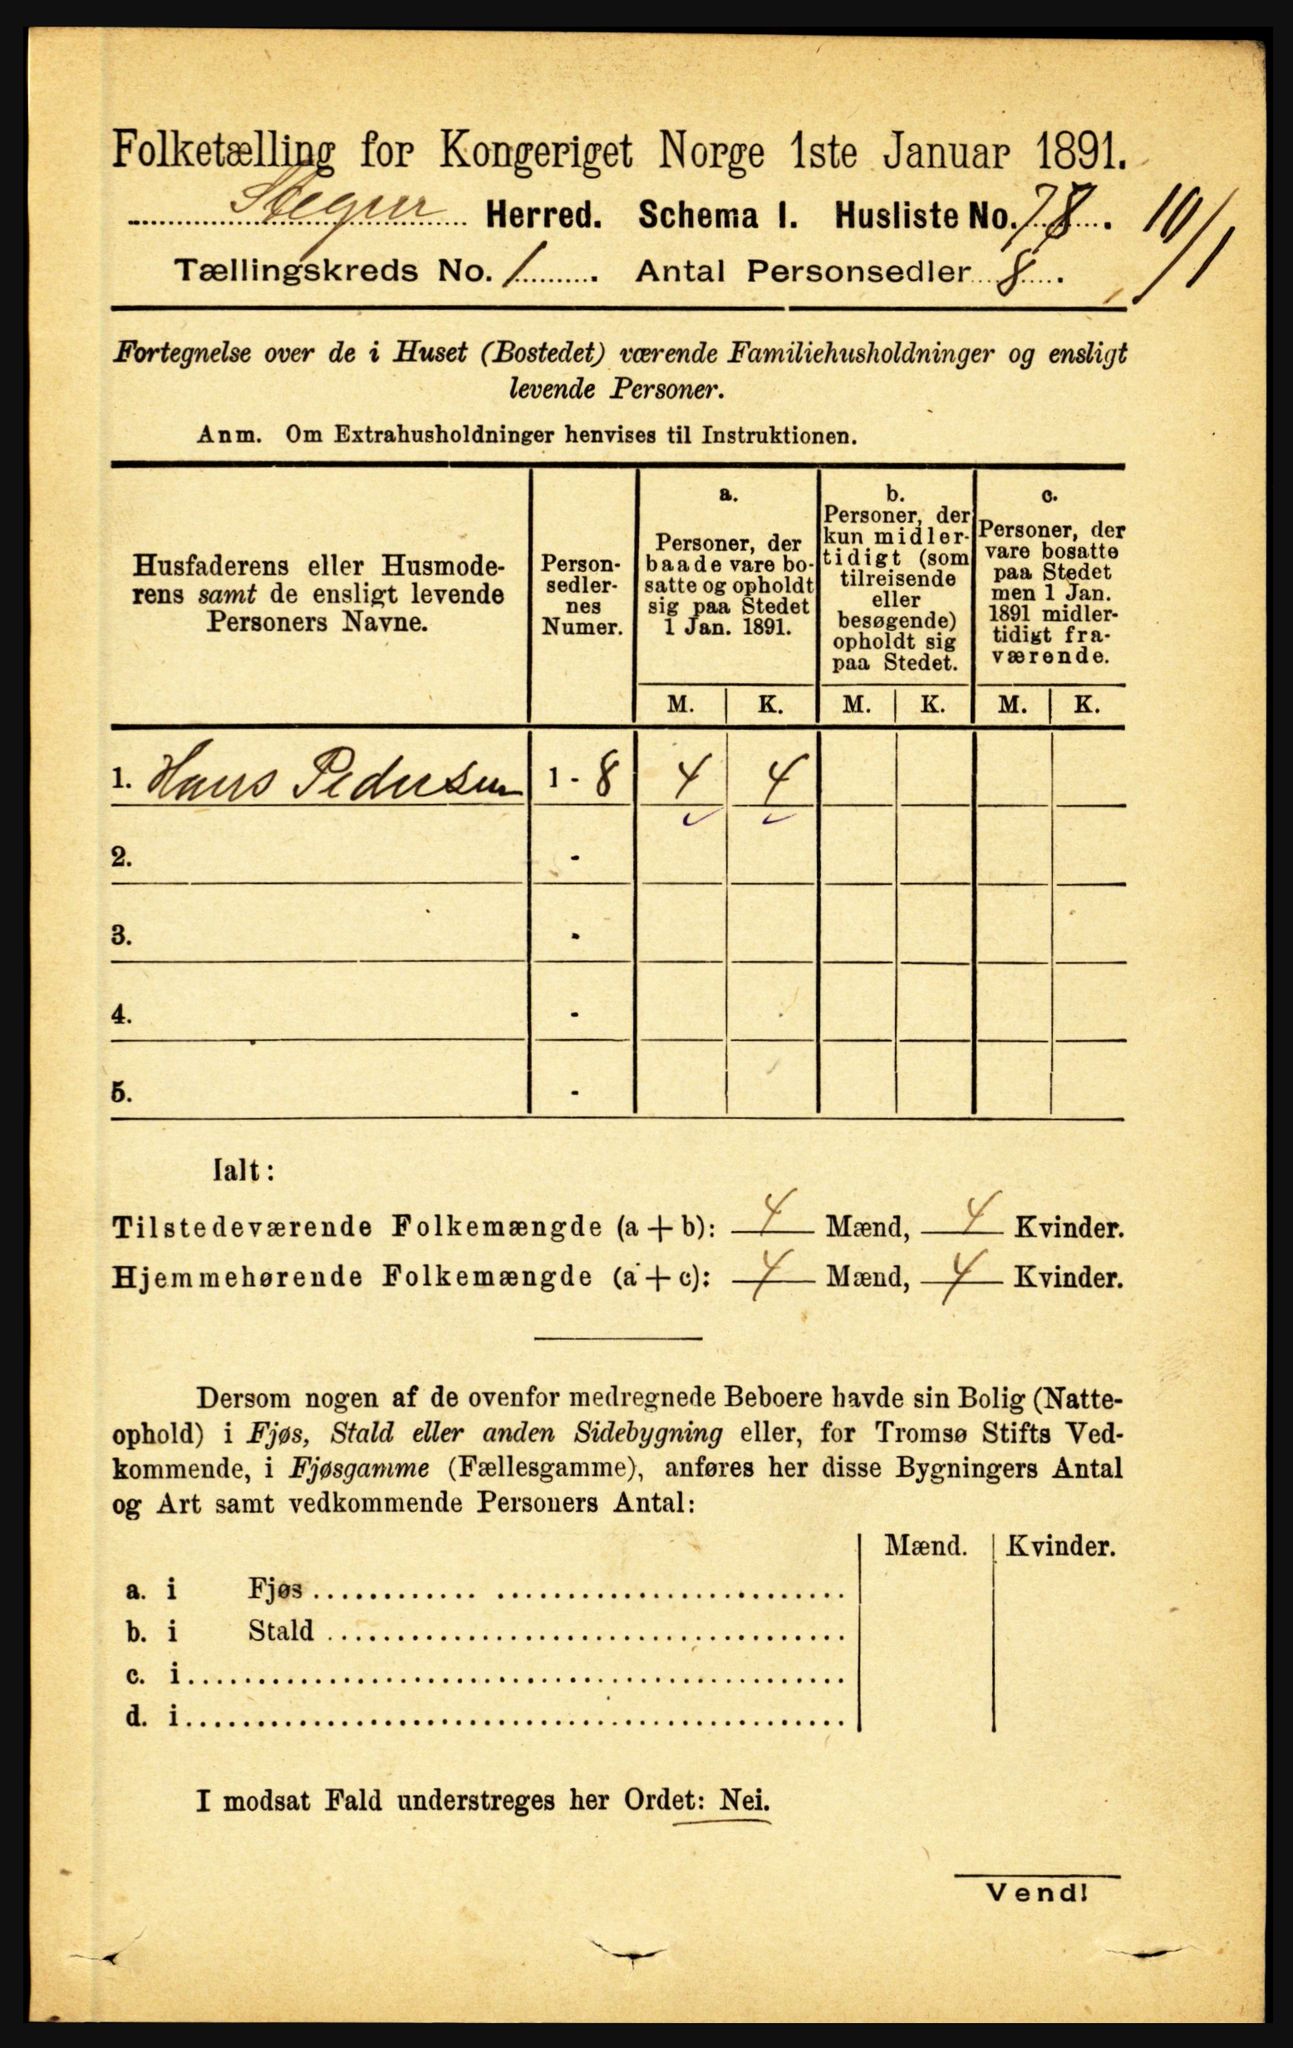 Folketælling for Kongeriget Norge 1ste Januar 1891.
Herred. Schema I. Husliste No. 78.
10/1
Tællingskreds No. 1. Antal Personsedler 8.
Fortegnelse over de i Huset (Bostedet) værende Familiehusholdninger og ensligt
levende Personer.
Anm. Om Extrahusholdninger henvises til Instruktionen.
Husfaderens eller Husmode-
rens samt de ensligt levende
Personers Navne.
Person-
sedler-
nes
Numer.
a.
Personer, der
baade vare bo-
satte og opholdt
sig paa Stedet
1 Jan. 1891.
b.
Personer, der
kun midler-
tidigt (som
tilreisende
eller
besøgende)
opholdt sig
paa Stedet.
c.
Personer, der
vare bosatte
paa Stedet
men 1 Jan.
1891 midler-
tidigt fra-
værende.
M. K. M. K. M. K.
1. Hans Pedersen 1 - 8 4 4
2. -
3. -
4. -
5. -
Ialt:
Tilstedeværende Folkemængde (a + b): 4 Mænd, 4 Kvinder.
Hjemmehørende Folkemængde (a + c): 4 Mænd, 4 Kvinder.
Dersom nogen af de ovenfor medregnede Beboere havde sin Bolig (Natte-
ophold) i Fjøs, Stald eller anden Sidebygning eller, for Tromsø Stifts Ved-
kommende, i Fjøsgamme (Fællesgamme), anføres her disse Bygningers Antal
og Art samt vedkommende Personers Antal:
Mænd. Kvinder.
a. i Fjøs
b. i Stald
c. i
d. i
I modsat Fald understreges her Ordet: Nei.
Vend!